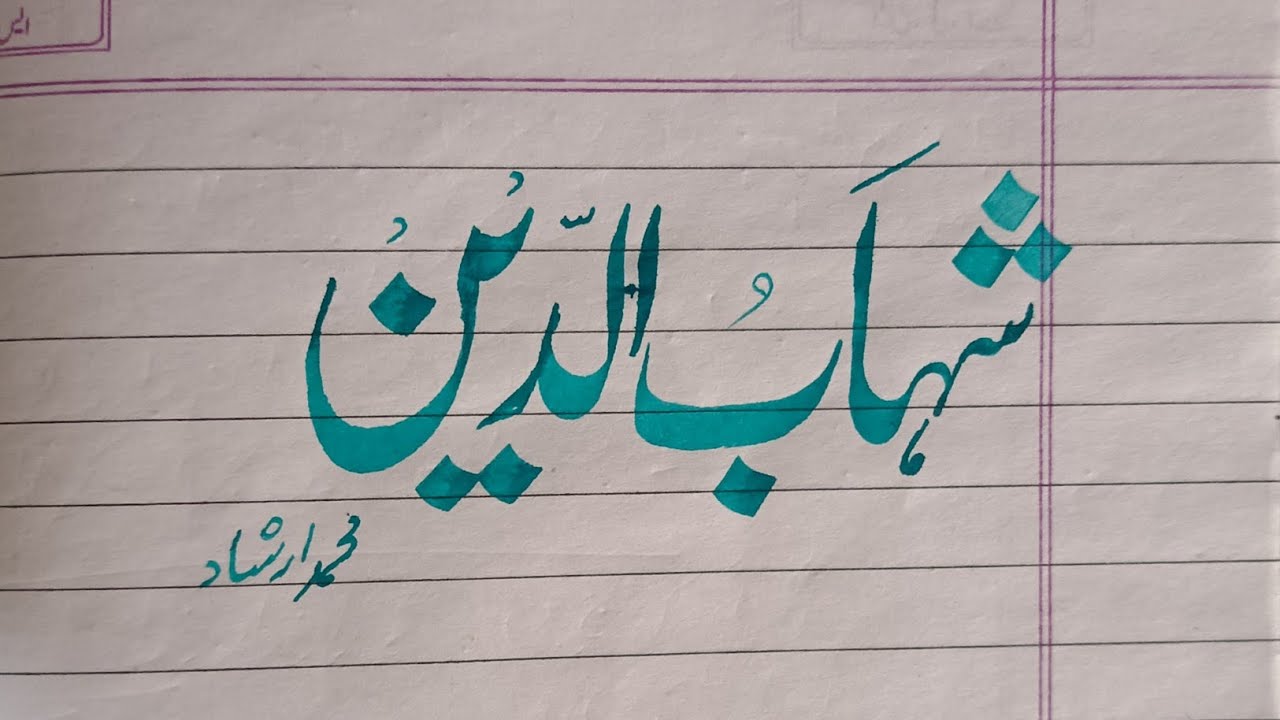 شہابُ الدّیْنُ
محمد ارشاد